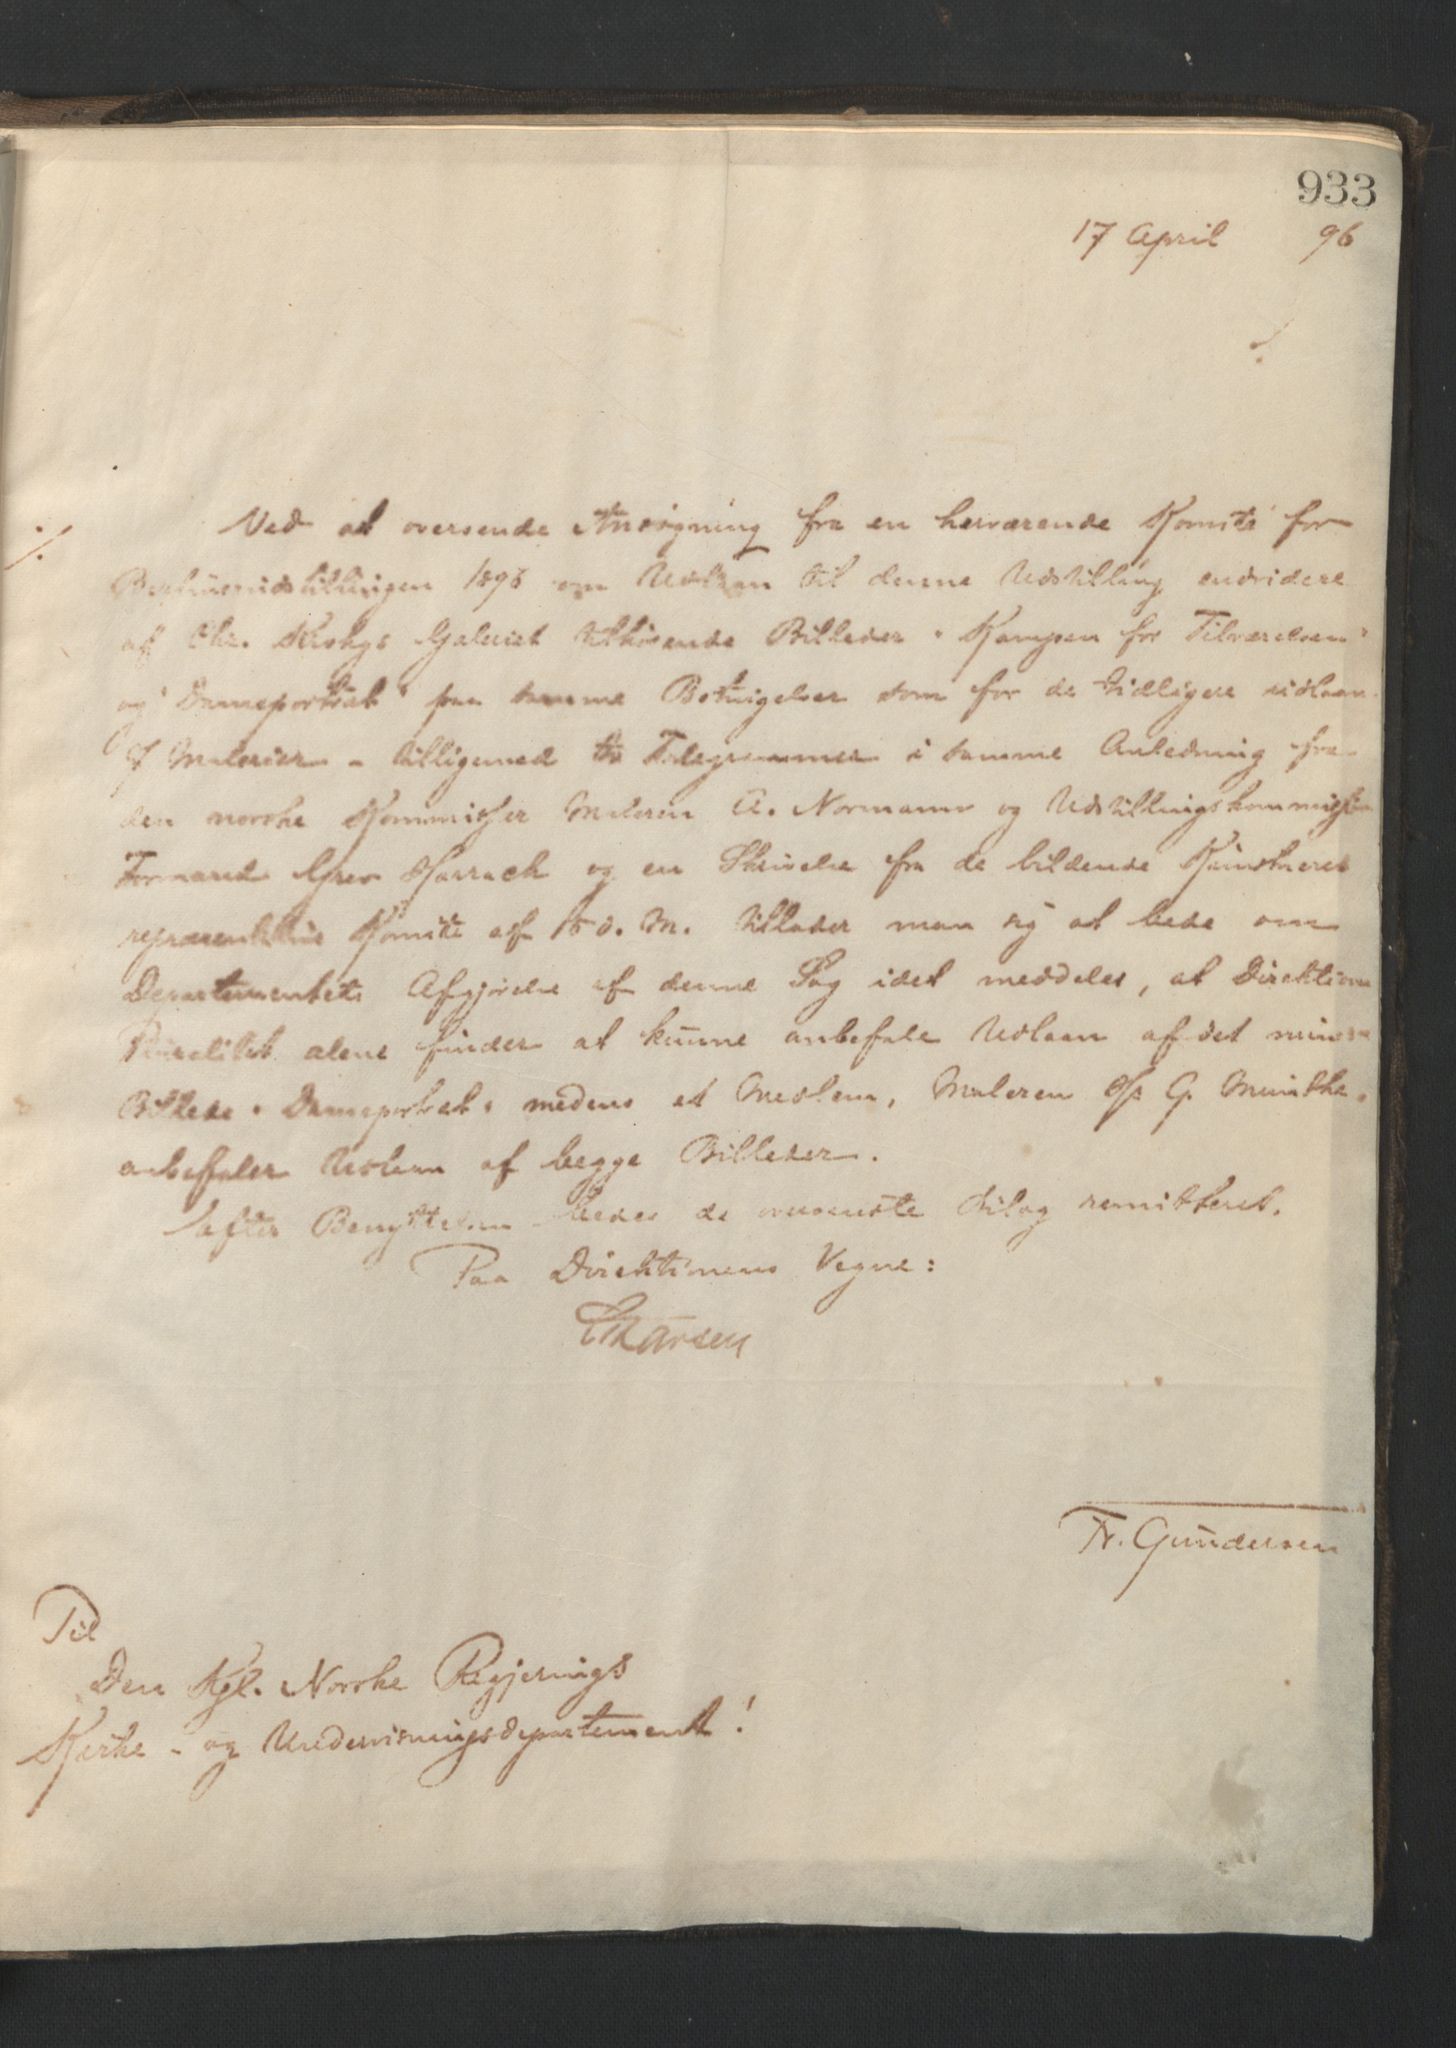 933
17 April 96
Ved at oversende Ansøgning fra en herværende Komité for
Berlinerudstillingen 1896 om Udlaan til denne Udstilling endvidere
af Chr. Krohgs Galeriet tilhørende Billeder "Kampen for Tilværelsen"
og "Dameportræt" paa samme Betingelser som for de tidligere udlaan-
te Malerier - tilligemed to Telegrammer i samme Anledning fra
den norske Kommissær Maleren A. Normann og Udstillingskommissionens
Formand Grev Harrach og en Skrivelse fra de bildende Kunstneres
repræsentative Komite af 15 d. M. tillader man sig at bede om
Departementets Afgjørelse af denne Sag idet meddeles, at Direktionens
Pluralitet alene finder at kunne anbefale Udlaan af det mindre
Billede "Dameportræt" medens et Medlem, Maleren Hr G. Munthe,
anbefaler Udlaan af begge Billeder.
Efter Benyttelsen bedes de oversendte Bilag remitteret.
Paa Direktionens Vegne:
Fr. Gundersen
Til
Den Kgl. Norske Regjerings
Kirke- og Undervisningsdepartement!